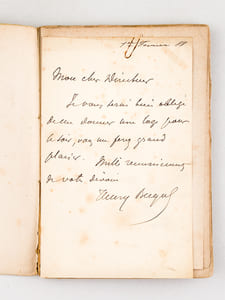 Février
Mon cher Directeur
Je vous serai bien obligé
de me donner une loge pour
ce soir, vous me ferez grand
plaisir. Mille remerciements
de votre dévoué
Henry Becque